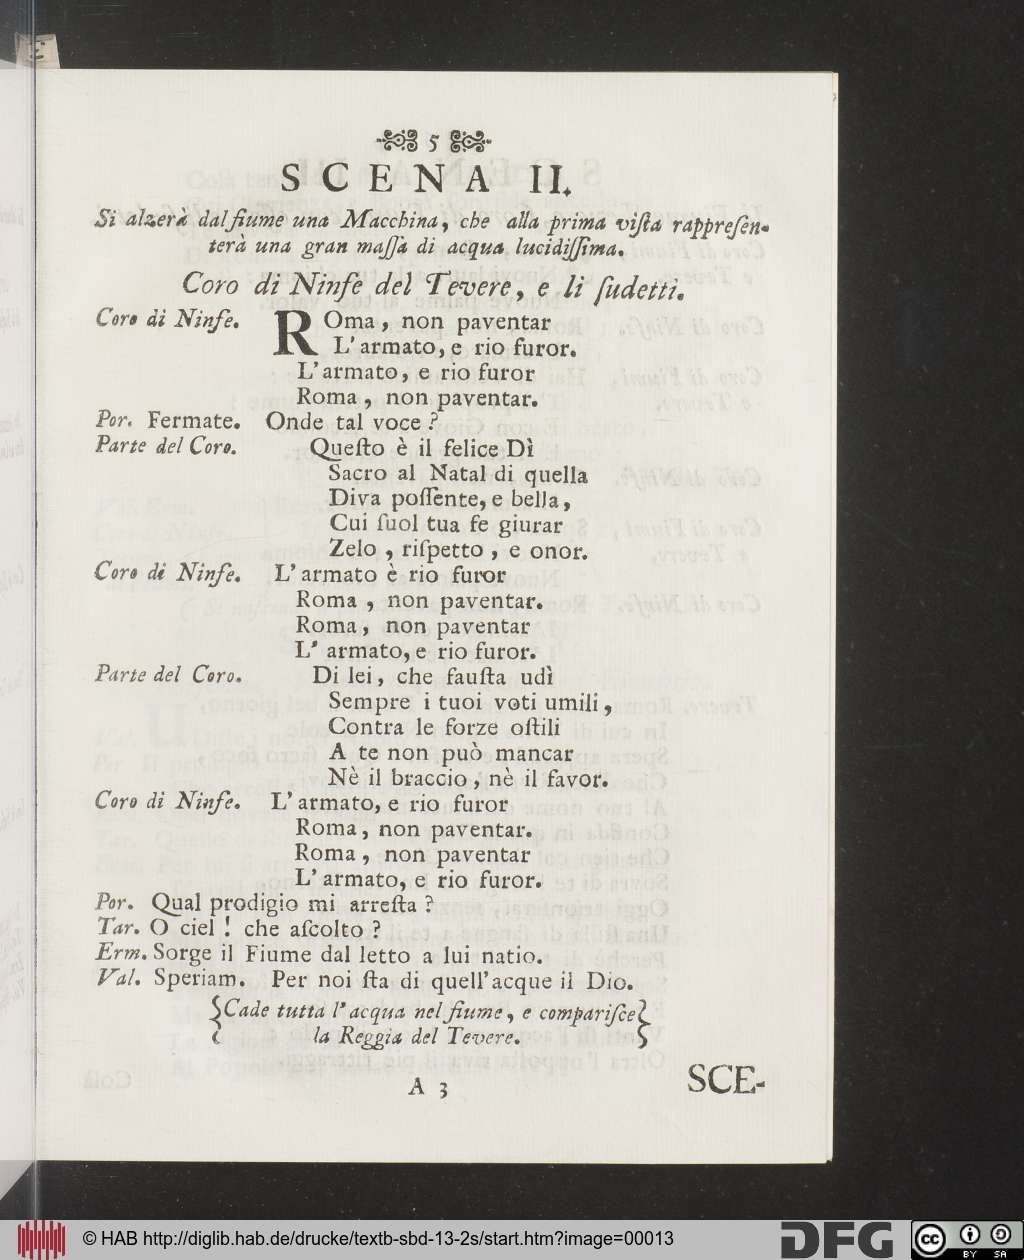 5
SCENA II.
Si alzerà dal fiume una Macchina, che alla prima viſta rappreſen-
terà una gran maſſa di acqua lucidiſſima.
Coro di Ninfe del Tevere, e li ſudetti.
Coro di Ninfe. ROma, non paventar
L'armato, e rio furor.
L'armato, e rio furor
Roma, non paventar.
Por. Fermate. Onde tal voce?
Parte del Coro. Queſto è il felice Dì
Sacro al Natal di quella
Diva poſſente, e bella,
Cui ſuol tua fe giurar
Zelo, riſpetto, e onor.
Coro di Ninfe. L'armato è rio furor
Roma, non paventar.
Roma, non paventar
L'armato, e rio furor.
Parte del Coro. Di lei, che fauſta udì
Sempre i tuoi voti umili,
Contra le forze oſtili
A te non può mancar
Nè il braccio, nè il favor.
Coro di Ninfe. L'armato, e rio furor
Roma, non paventar.
Roma, non paventar
L'armato, e rio furor.
Por. Qual prodigio mi arreſta?
Tar. O ciel! che aſcolto?
Erm. Sorge il Fiume dal letto a lui natio.
Val. Speriam. Per noi ſta di quell'acque il Dio.
{Cade tutta l'acqua nel fiume, e compariſce}
{la Reggia del Tevere.}
A 3
SCE-
© HAB http://diglib.hab.de/drucke/textb-sbd-13-2s/start.htm?image=00013
DFG
cc BY SA